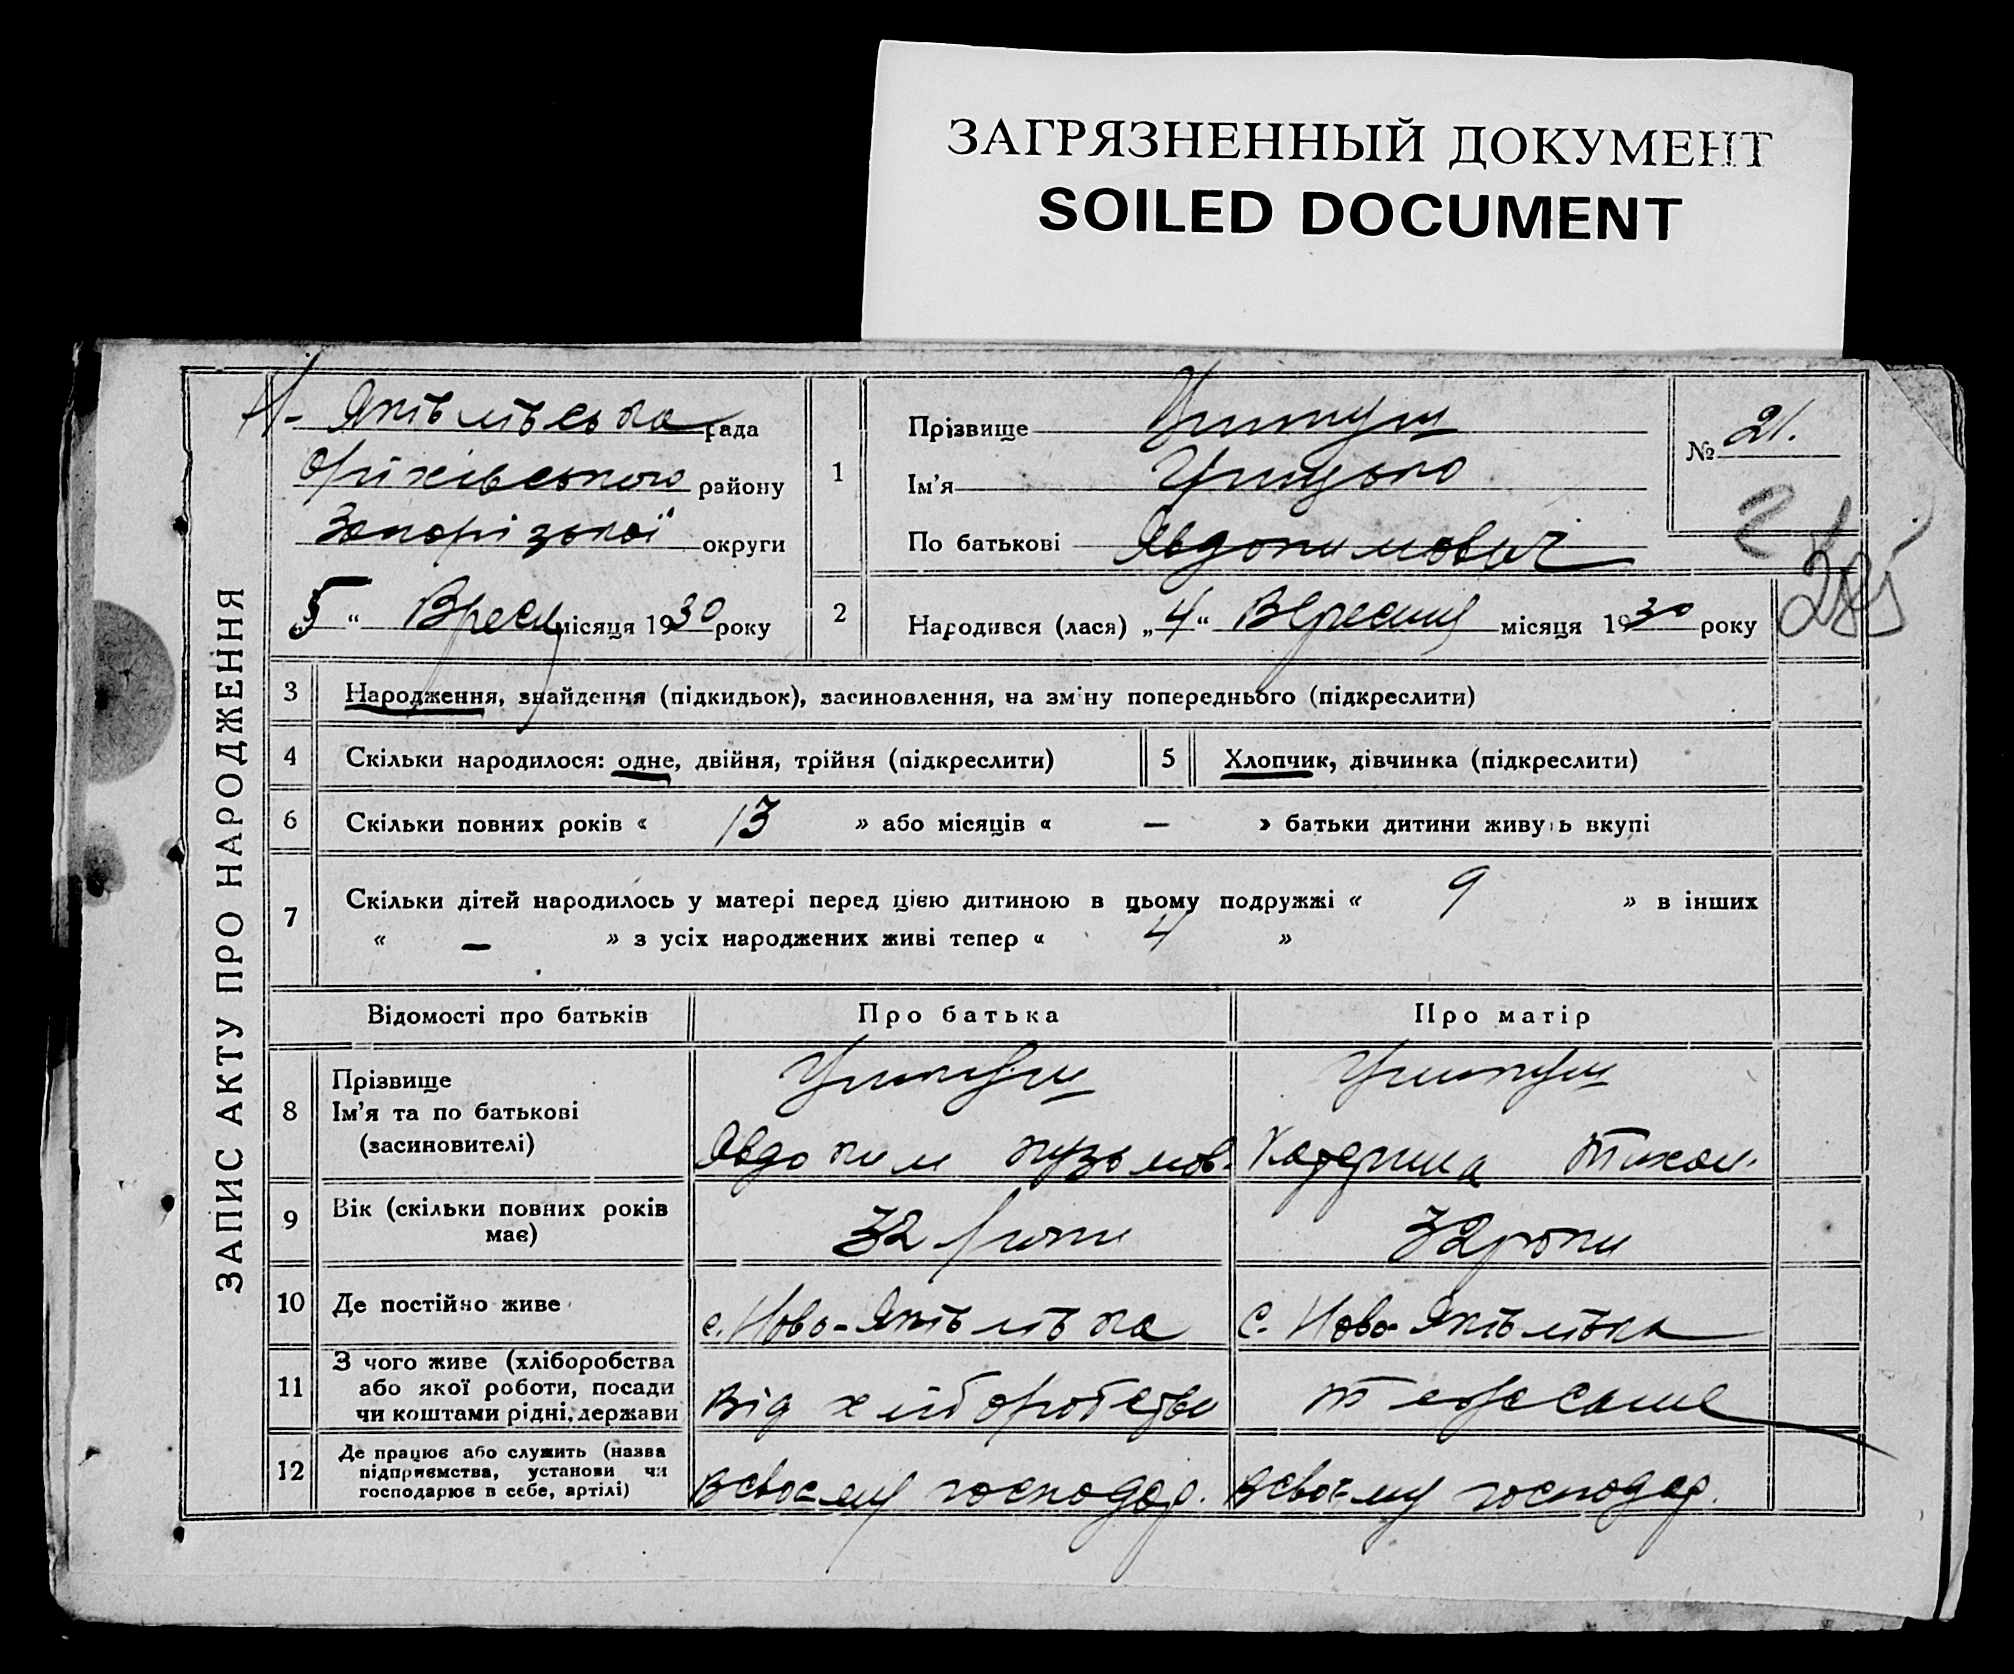 ЗАГРЯЗНЕННЫЙ ДОКУМЕНТ
SOILED DOCUMENT
ЗАПИС АКТУ ПРО НАРОДЖЕННЯ
рада
Оріхівського району
Запорізької округи
5 “ Вресн місяця 1930 року
1
Прізвище
Ім’я Грицько
По батькові Явдокимович
№ 21.
285
2 Народився (лася) „4“ Вересня місяця 1930 року
3 Народження, знайдення (підкидьок), засиновлення, на зміну попереднього (підкреслити)
4 Скільки народилося: одне, двійня, трійня (підкреслити)
5 Хлопчик, дівчинка (підкреслити)
6 Скільки повних років « 13 » або місяців « — » батьки дитини живуть вкупі
7 Скільки дітей народилось у матері перед цією дитиною в цьому подружжі « 9 » в інших
« — » з усіх народжених живі тепер « 4 »
Відомості про батьків Про батька Про матір
8 Прізвище
Ім’я та по батькові
(засиновителі)
Явдоким Кузьмов. Катерина Тихон.
9 Вік (скільки повних років
має)
32 роки 32 роки
10 Де постійно живе
11 З чого живе (хліборобства
або якої роботи, посади
чи коштами рідні, держави
Від хліборобства теж саме
12 Де працює або служить (назва
підприємства, установи чи
господарює в себе, артілі)
В своєму господар. В своєму господар.